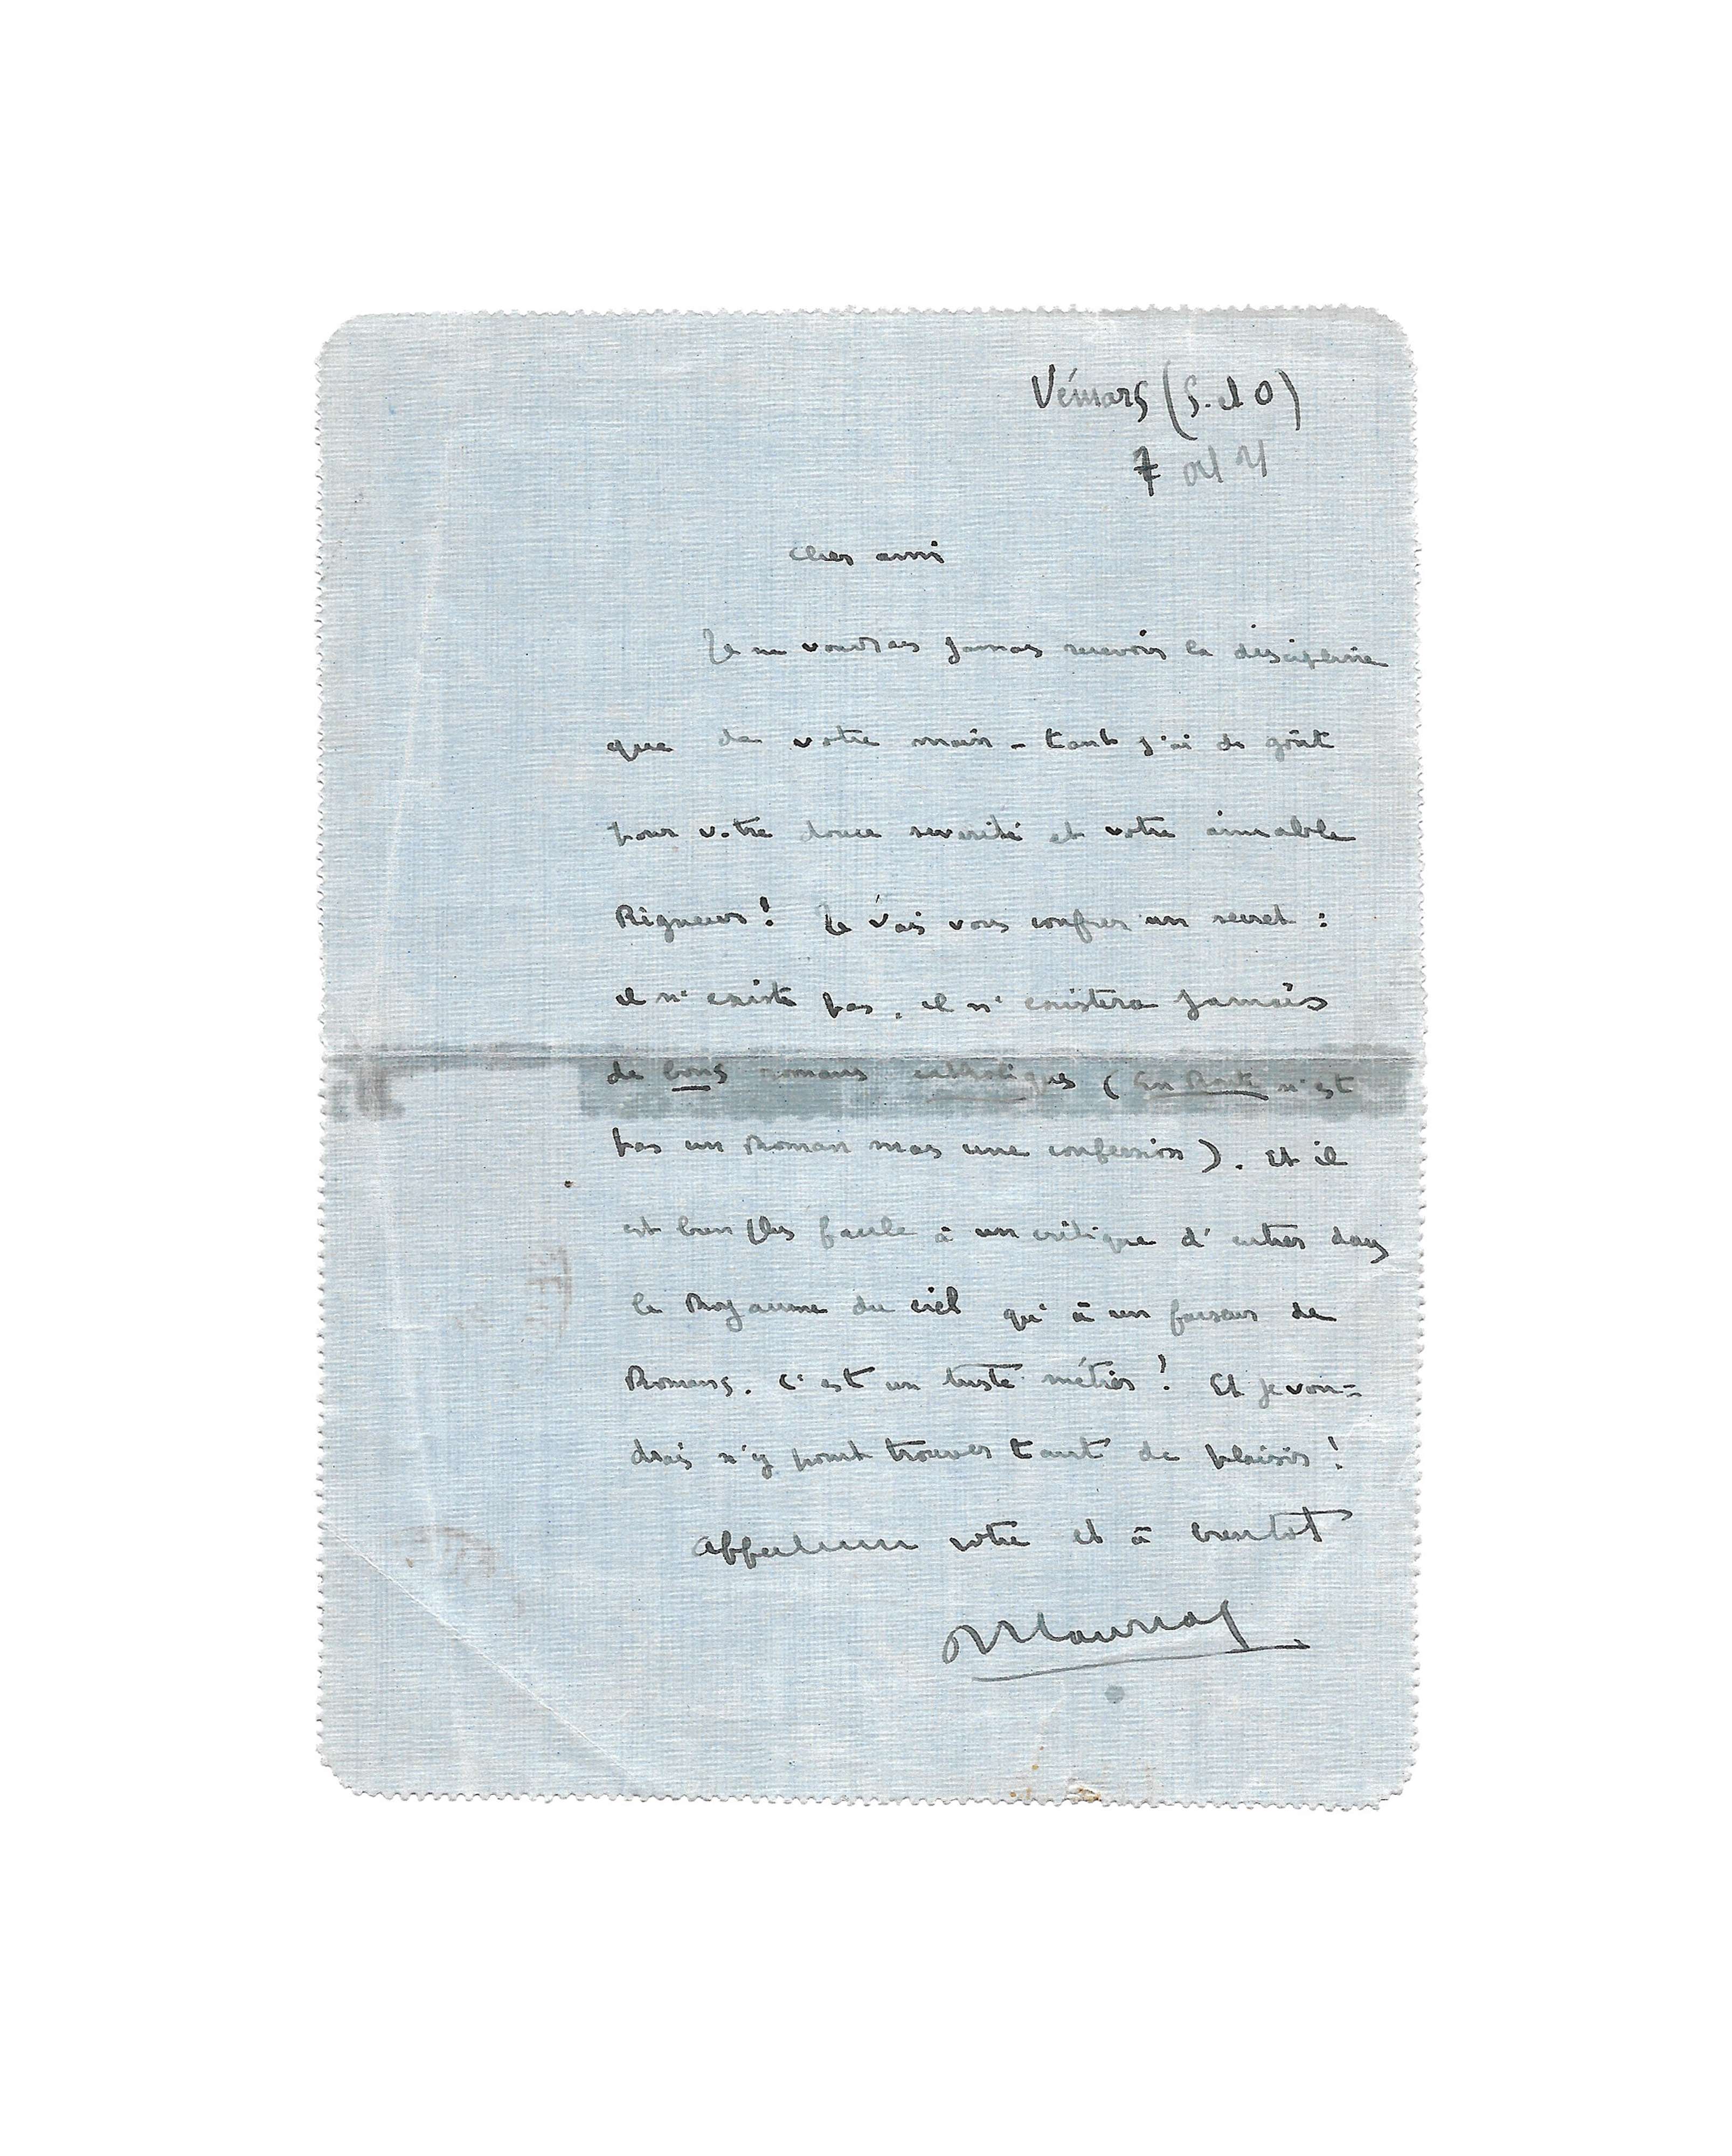 Vémars (S. et O)
7 oct 21
Cher ami
Je ne voudrais jamais recevoir la discipline
que de votre main - tant j'ai de goût
pour votre douce severité et votre aimable
Rigueur! Je vais vous confier un secret :
il n'existe pas, il n'existera jamais
de bons romans catholiques (En Route n'est
pas un Roman mais une confession). Et il
est bien plus facile à un critique d'entrer dans
le Royaume du ciel qu'à un faiseur de
Romans. C'est un triste métier! Et je vou=
drais n'y point trouver tant de plaisir!
Affectueusement votre et à bientôt
FMauriac